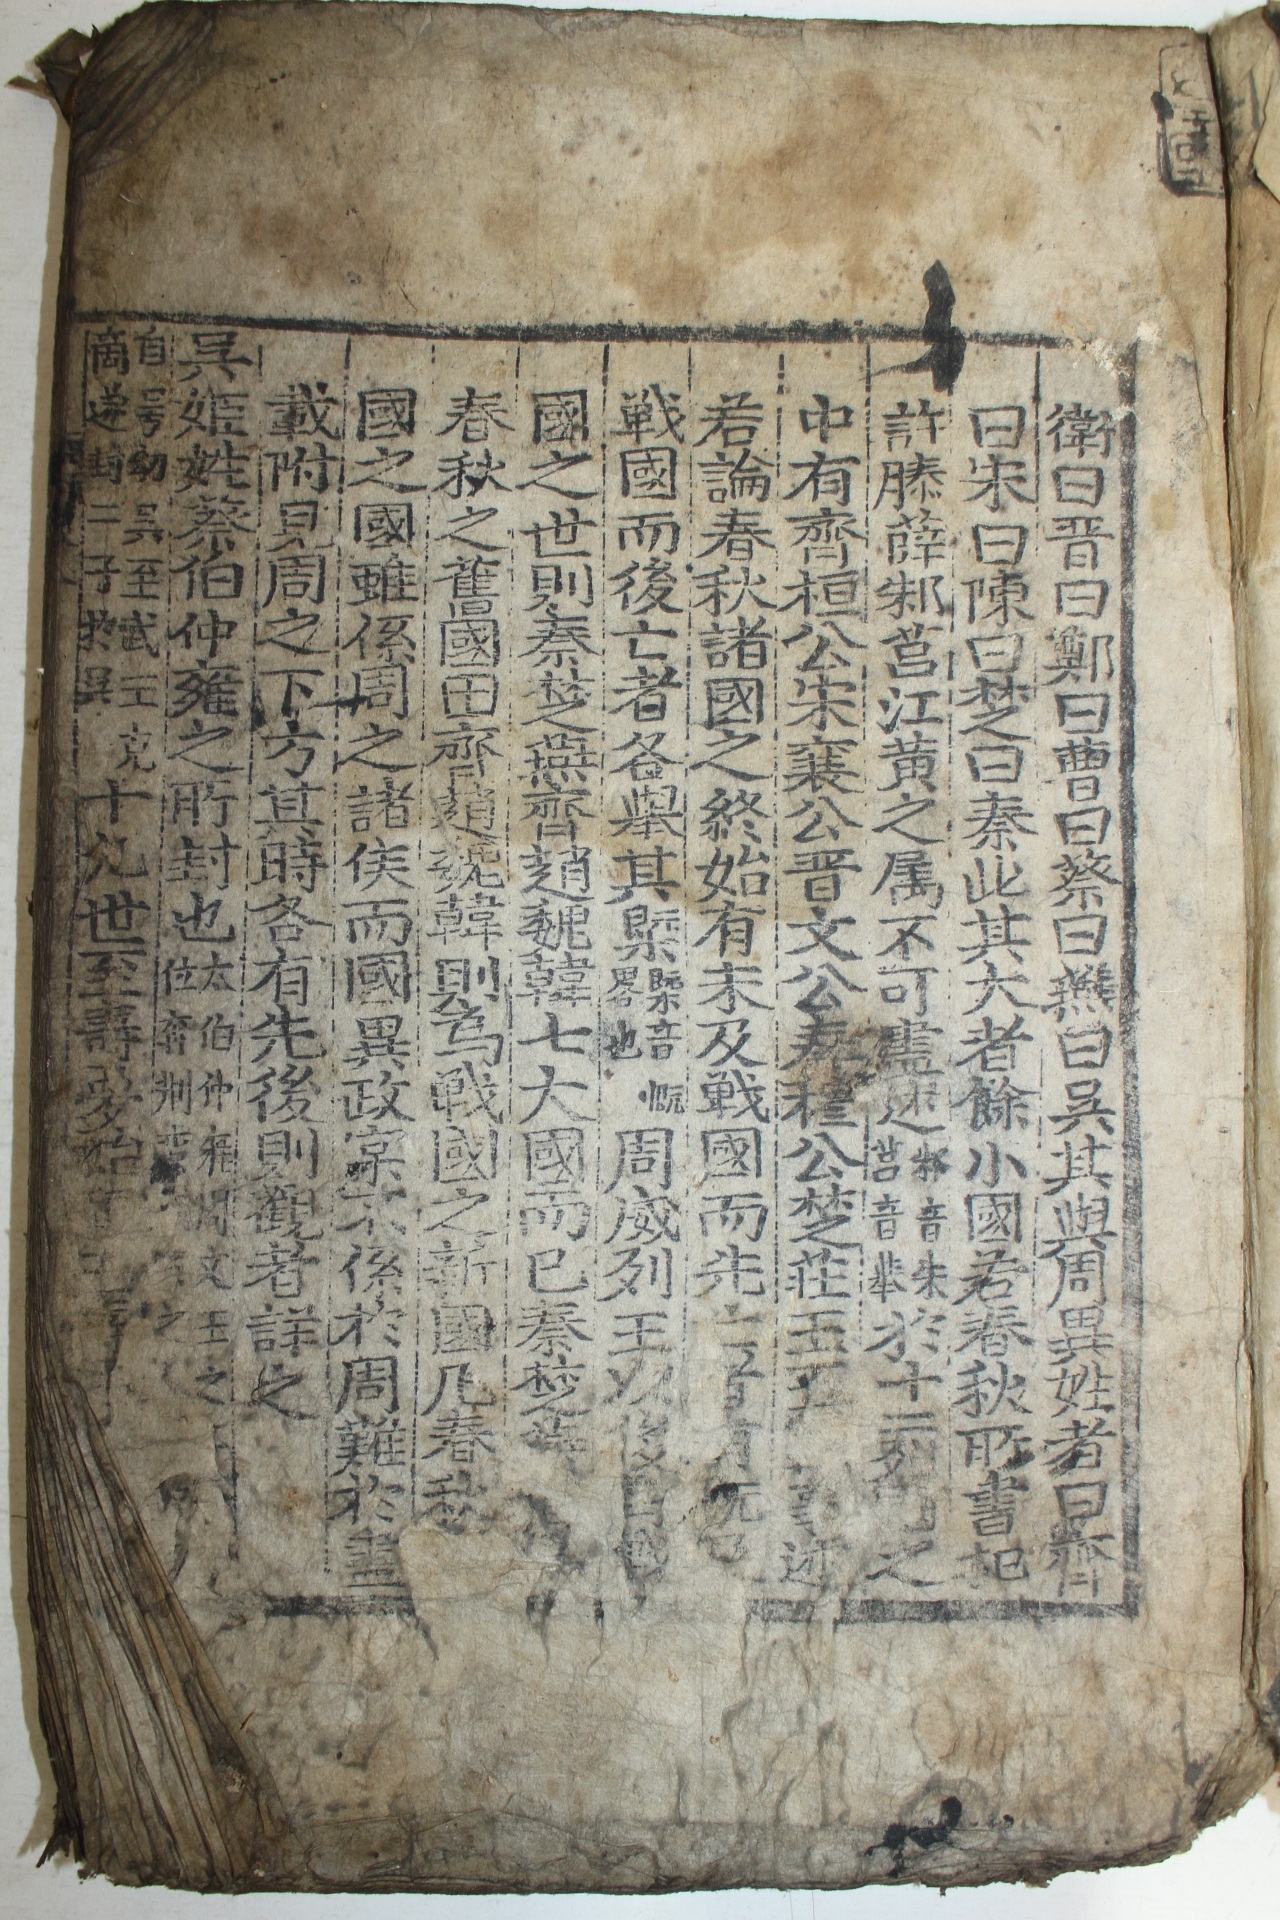 衛曰晋曰鄭曰曹曰蔡曰燕曰吳其與周異姓者曰齊
曰宋曰陳曰楚曰秦此其大者餘小國若春秋所書杞
許滕薛邾莒江黃之属不可盡述邾音朱莒音擧於十二列國之
中有齊桓公宋襄公晋文公秦穆公楚莊王五
若論春秋諸國之終始有未及戰國而先亡者有
戰國而後亡者各擧其槩槩音慨畧也周威列王以後
國之世則秦楚燕齊趙魏韓七大國而已秦楚燕
春秋之舊國田齊趙魏韓則為戰國之新國凡春秋
國之國雖係周之諸侯而國異政家不係於周難於盡
載附見周之下方其時各有先後則觀者詳之
吳姬姓蔡伯仲雍之所封也太伯仲雍周文王之
自号勾吳至武王克
商遂封二子於吳十九世至壽夢始